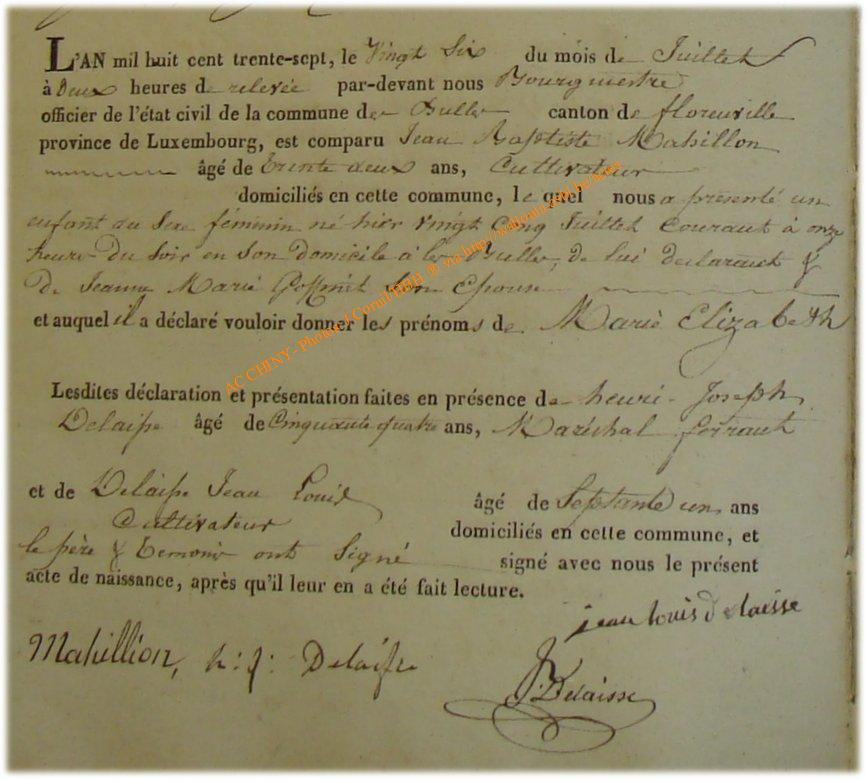 L'AN mil huit cent trente-sept, le Vingt Six du mois de Juillet
à Deux heures de relevée par-devant nous Bourgmestre
officier de l'état civil de la commune de Bulles canton de florenville
province de Luxembourg, est comparu Jean Baptiste Mahillon
âgé de Trente deux ans, Cultivateur
domiciliés en cette commune, le quel nous a présenté un
enfant du Sexe féminin né hier Vingt Cinq Juillet Courant à onze
heures Du Soir en Son Domicile à Bulles, de lui declarant &
De Jeanne Marie Son Epouse
et auquel il a déclaré vouloir donner les prénoms de Marie Elizabeth
Lesdites déclaration et présentation faites en présence de henri-Joseph
Delaisse âgé de Cinquante quatre ans, Maréchal ferrant
et de Delaisse Jean Louis âgé de Septante un ans
Cultivateur domiciliés en cette commune, et
le père & temoins ont Signé signé avec nous le présent
acte de naissance, après qu'il leur en a été fait lecture.
jean louis Delaisse
Mahillion, h: j: Delaisse
Delaisse
AC CHINY - Photo(s) ® via http://wallonica